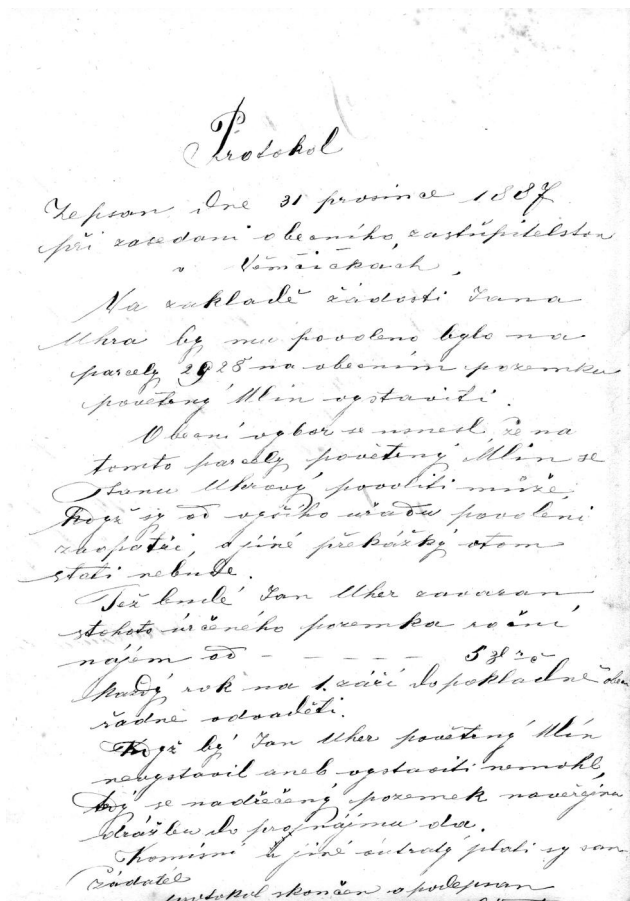 Protokol
Zepsan dne 31 prosince 1887
při zasedani obecního zastupitelstva
v Němčičkach
Na zakladě žádosti Jana
Uhra by mu povoleno bylo na
parcely 2928 na obecním pozemku
povětrný Mlin vystaviti.
Obecní vybor se usnesl že na
tomto parcely povětrný Mlin se
Janu Uhrový povoliti může,
když sy od vyšího uřadu povoleni
zaopatři, a jiné překážký otom
stati nebude.
Tež budé Jan Uher zavazan
stohoto určeného pozemka roční
nájem od - - - - - 5 zl rč
každý rok na 1. záři do pokladně
řadně odvaděti.
Když by Jan Uher povětrný Mlin
nevystavil aneb vystaviti nemohl,
se nadřečený pozemek
dražbu do pronájmu da.
Komisní a jiné outraty plati sy sam
žádatel
protokol skončen a podepsan